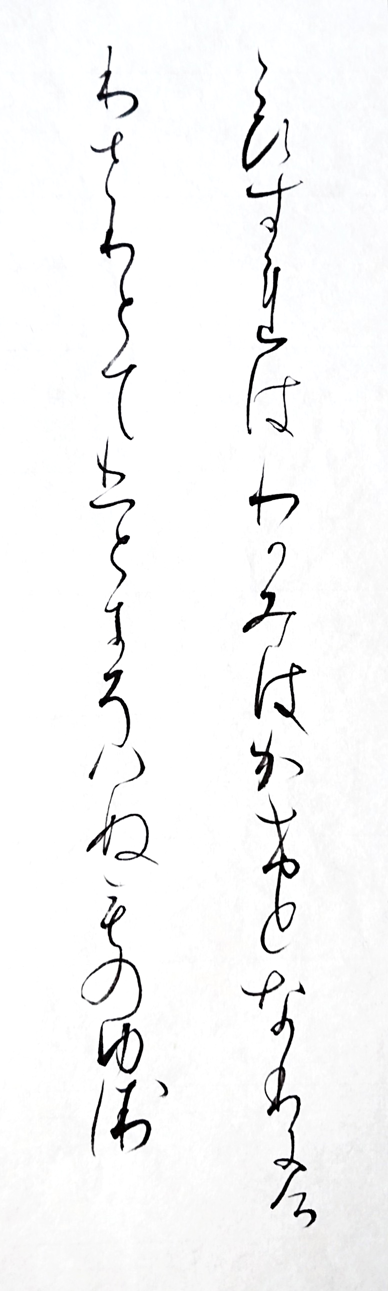 こひすれはわかみはかけとなりにけ
りさりとてひとにそはぬものゆゑ